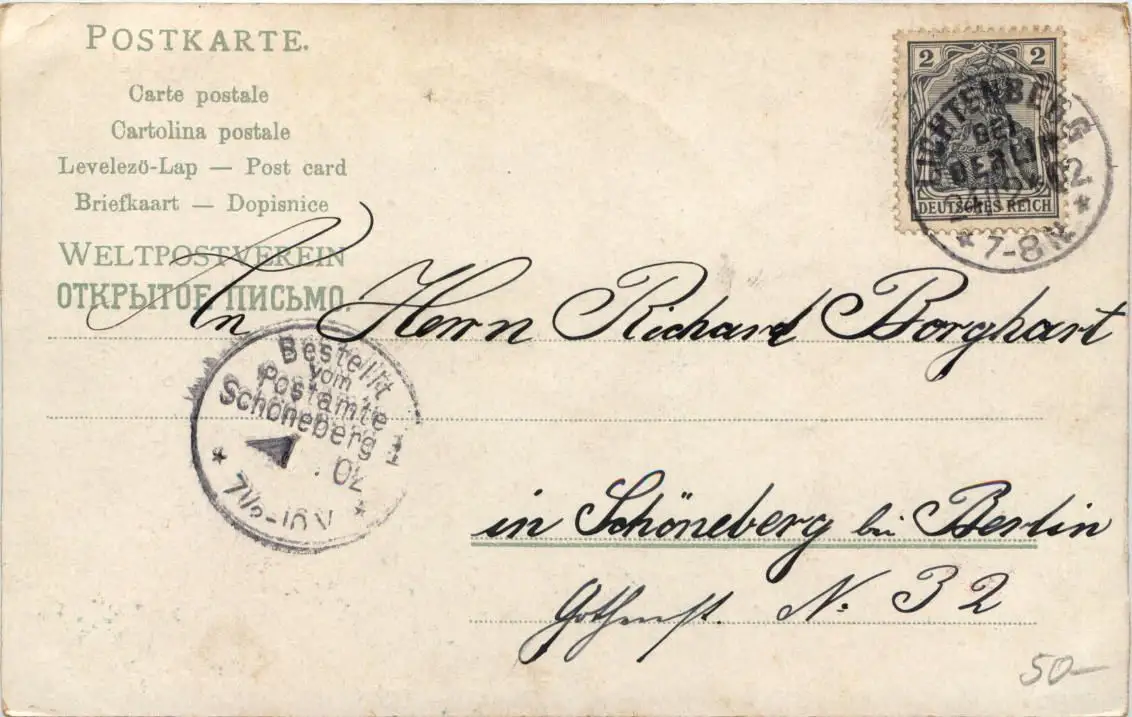 POSTKARTE.
Carte postale
Cartolina postale
Levelező-Lap — Post card
Briefkaart — Dopisnice
WELTPOSTVEREIN
ОТКРЫТОЕ ПИСЬМО.
2 2
DEUTSCHES REICH
LICHTENBERG
BEI
BERLIN
* 7-8 N. *
An Herrn Richard Borghart
Bestellt
vom
Postamte
Schöneberg
in Schöneberg bei Berlin
Gothenst. N: 32
50—